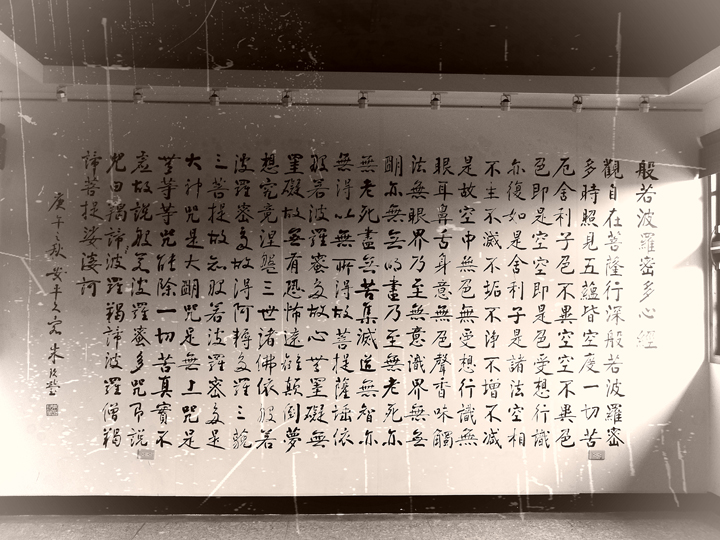 般若波羅密多心經
觀自在菩薩行深般若波羅密
多時照見五蘊皆空度一切苦
厄舍利子色不異空空不異色
色即是空空即是色受想行識
亦復如是舍利子是諸法空相
不生不滅不垢不淨不增不減
是故空中無色無受想行識無
眼耳鼻舌身意無色聲香味觸
法無眼界乃至無意識界無無
明亦無無明盡乃至無老死亦
無老死盡無苦集滅道無智亦
無得以無所得故菩提薩埵依
般若波羅蜜多故心無罣礙無
罣礙故無有恐怖遠離顛倒夢
想究竟涅槃三世諸佛依般若
波羅密多故得阿耨多羅三藐
三菩提故知般若波羅密多是
大神咒是大明咒是無上咒是
無等等咒能除一切苦真實不
虛故說般若波羅蜜多咒即說
咒曰羯諦波羅羯諦波羅僧羯
諦菩提娑婆訶
庚午秋安平久客朱玖瑩